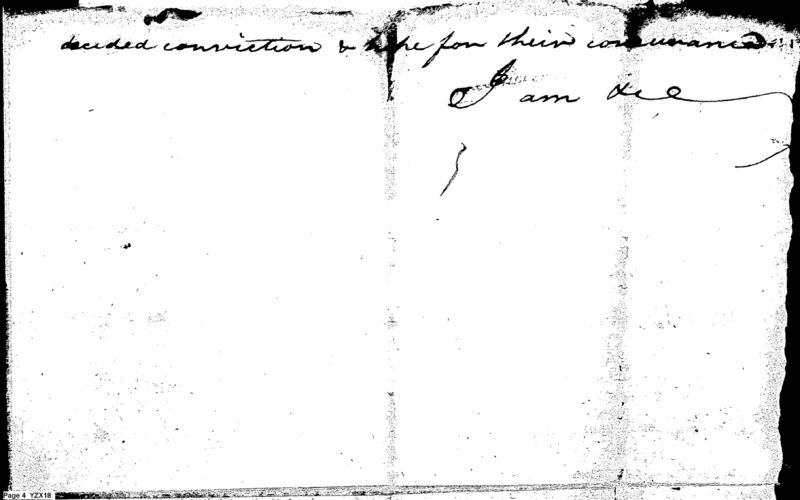 decided conviction & hope for their
I am &c
Page 4 YZX18